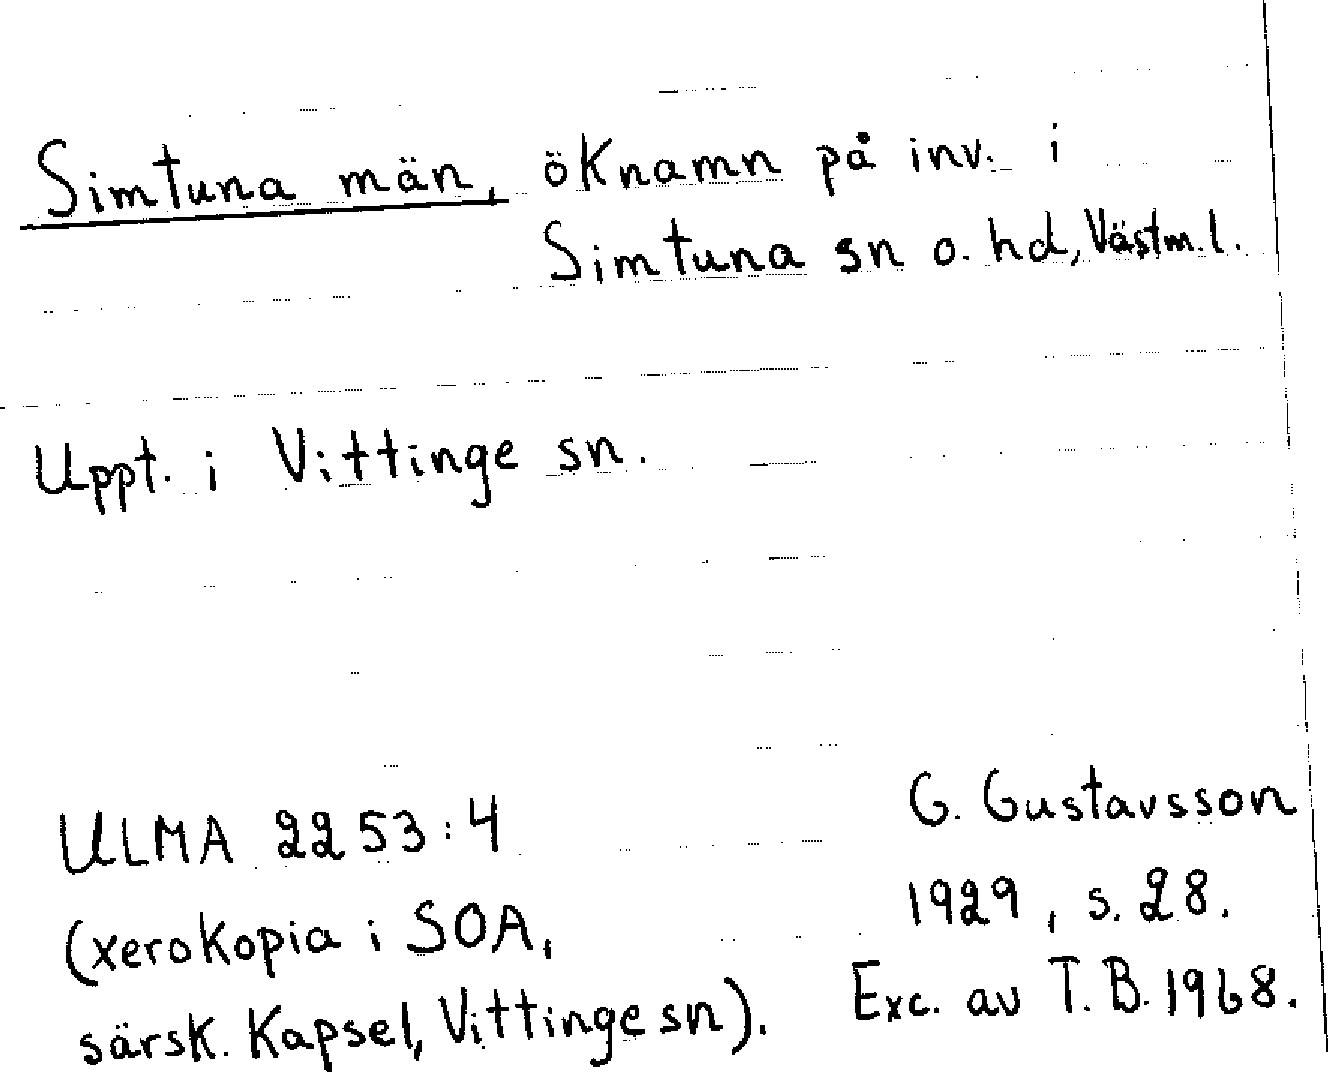 Simtuna män, öknamn på inv. i
Simtuna sn o. hd, Västm. l.
Uppt. i Vittinge sn.
ULMA 2253:4
(xerokopia i SOA,
särsk. kapsel, Vittinge sn).
G. Gustavsson
1929, s. 28.
Exc. av T. B. 1968.